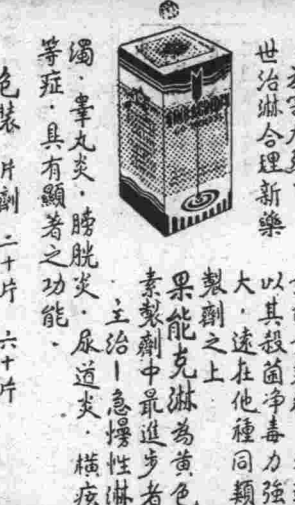 世治淋合理新藥
以其殺菌净毒力強
大．遠在他種同類
製劑之上
果能克淋為黄色
素製劑中最進步者
．主治—急慢性淋
濁．睾丸炎．膀胱炎．尿道炎．橫痃
等症．具有顯著之功能．
色裝 片劑 二十片 六十片